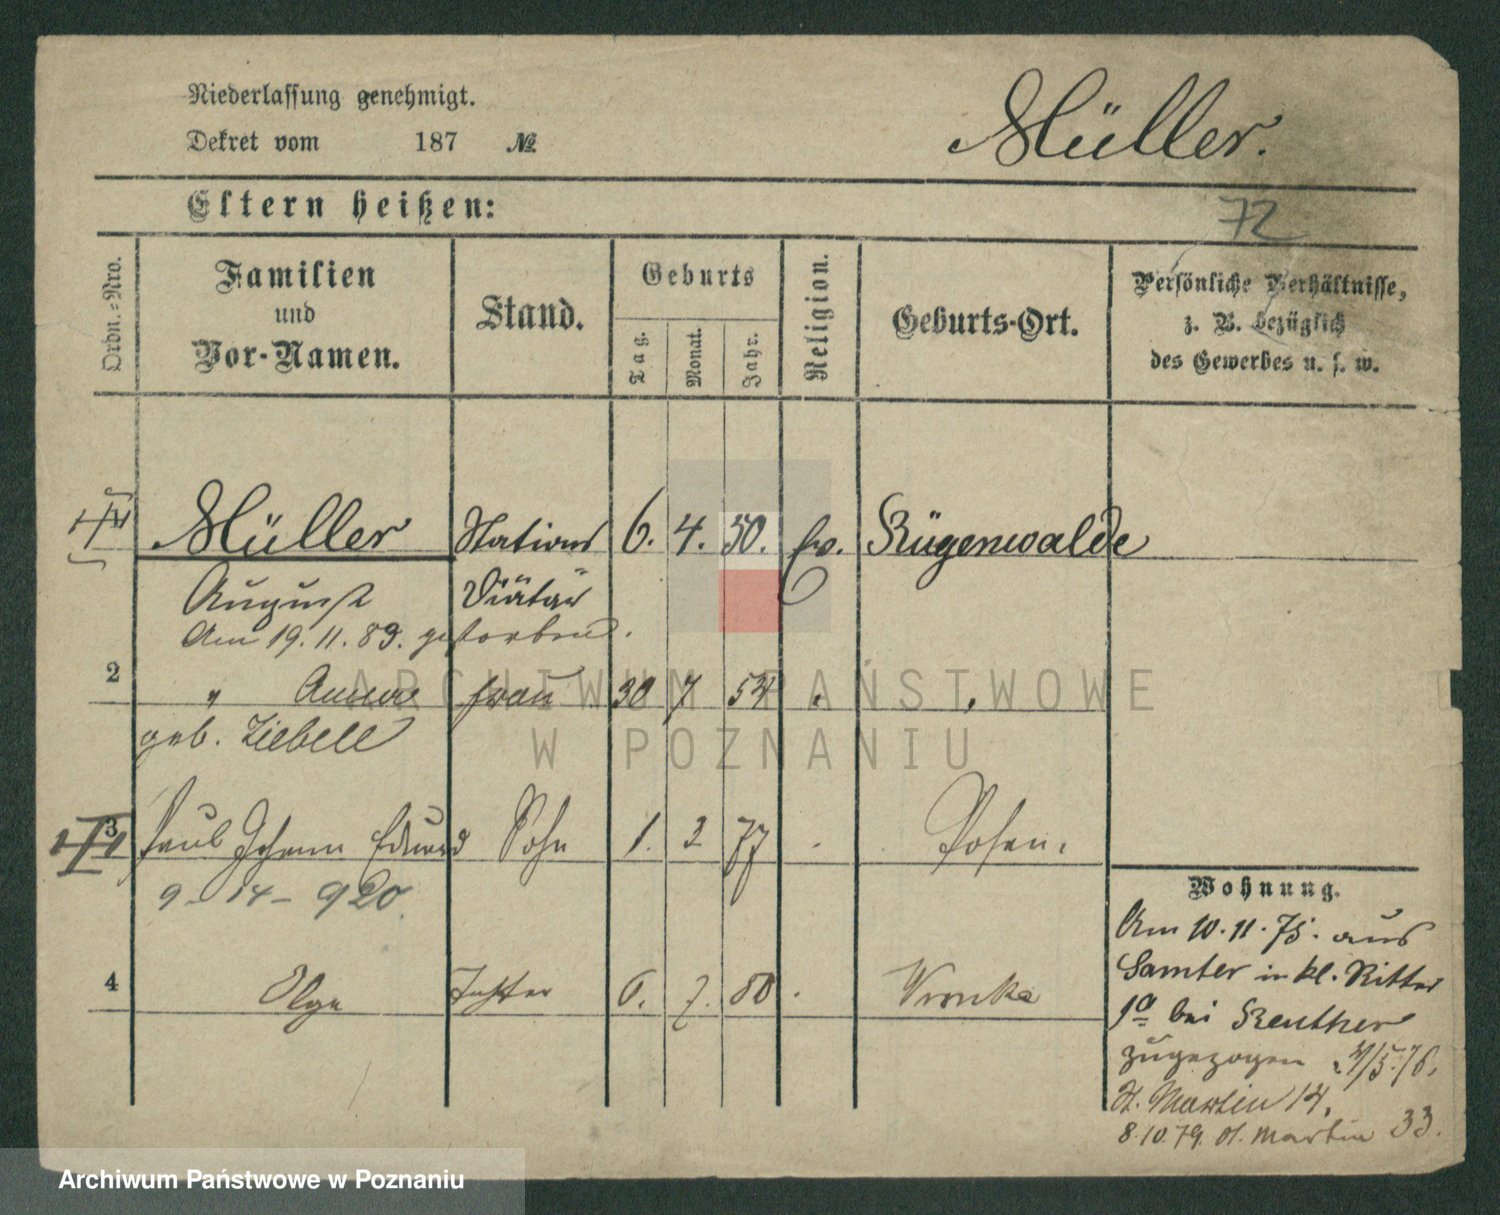 Niederlassung genehmigt.
Müller.
Dekret vom 187 №
Eltern heißen:
72
Ordn.-Nro.
Familien
und
Vor-Namen.
Stand.
Geburts
Tag.
Monat.
Jahr.
Religion.
Geburts-Ort.
Persönliche Verhältnisse,
z. B. bezüglich
des Gewerbes u. s. w.
Müller Stations 6. 4. 50. ev. Rügenwalde
August Diätar
Am 19. 11. 89. gestorben.
2 " Anna Frau 30 7 54 " "
geb. Ziebell
3 Paul Johann Eduard Sohn 1. 2 77 " Posen.
9-14-920.
4 Olga Tochter 6. 7. 80 " Wronke
Wohnung.
Am 10. 11. 75. aus
Samter in kl. Ritter
1a bei Reuther
zugezogen 4/5. 76.
St. Martin 14.
8. 10. 79. St. Martin 33.
ARCHIWUM PAŃSTWOWE
W POZNANIU
Archiwum Państwowe w Poznaniu